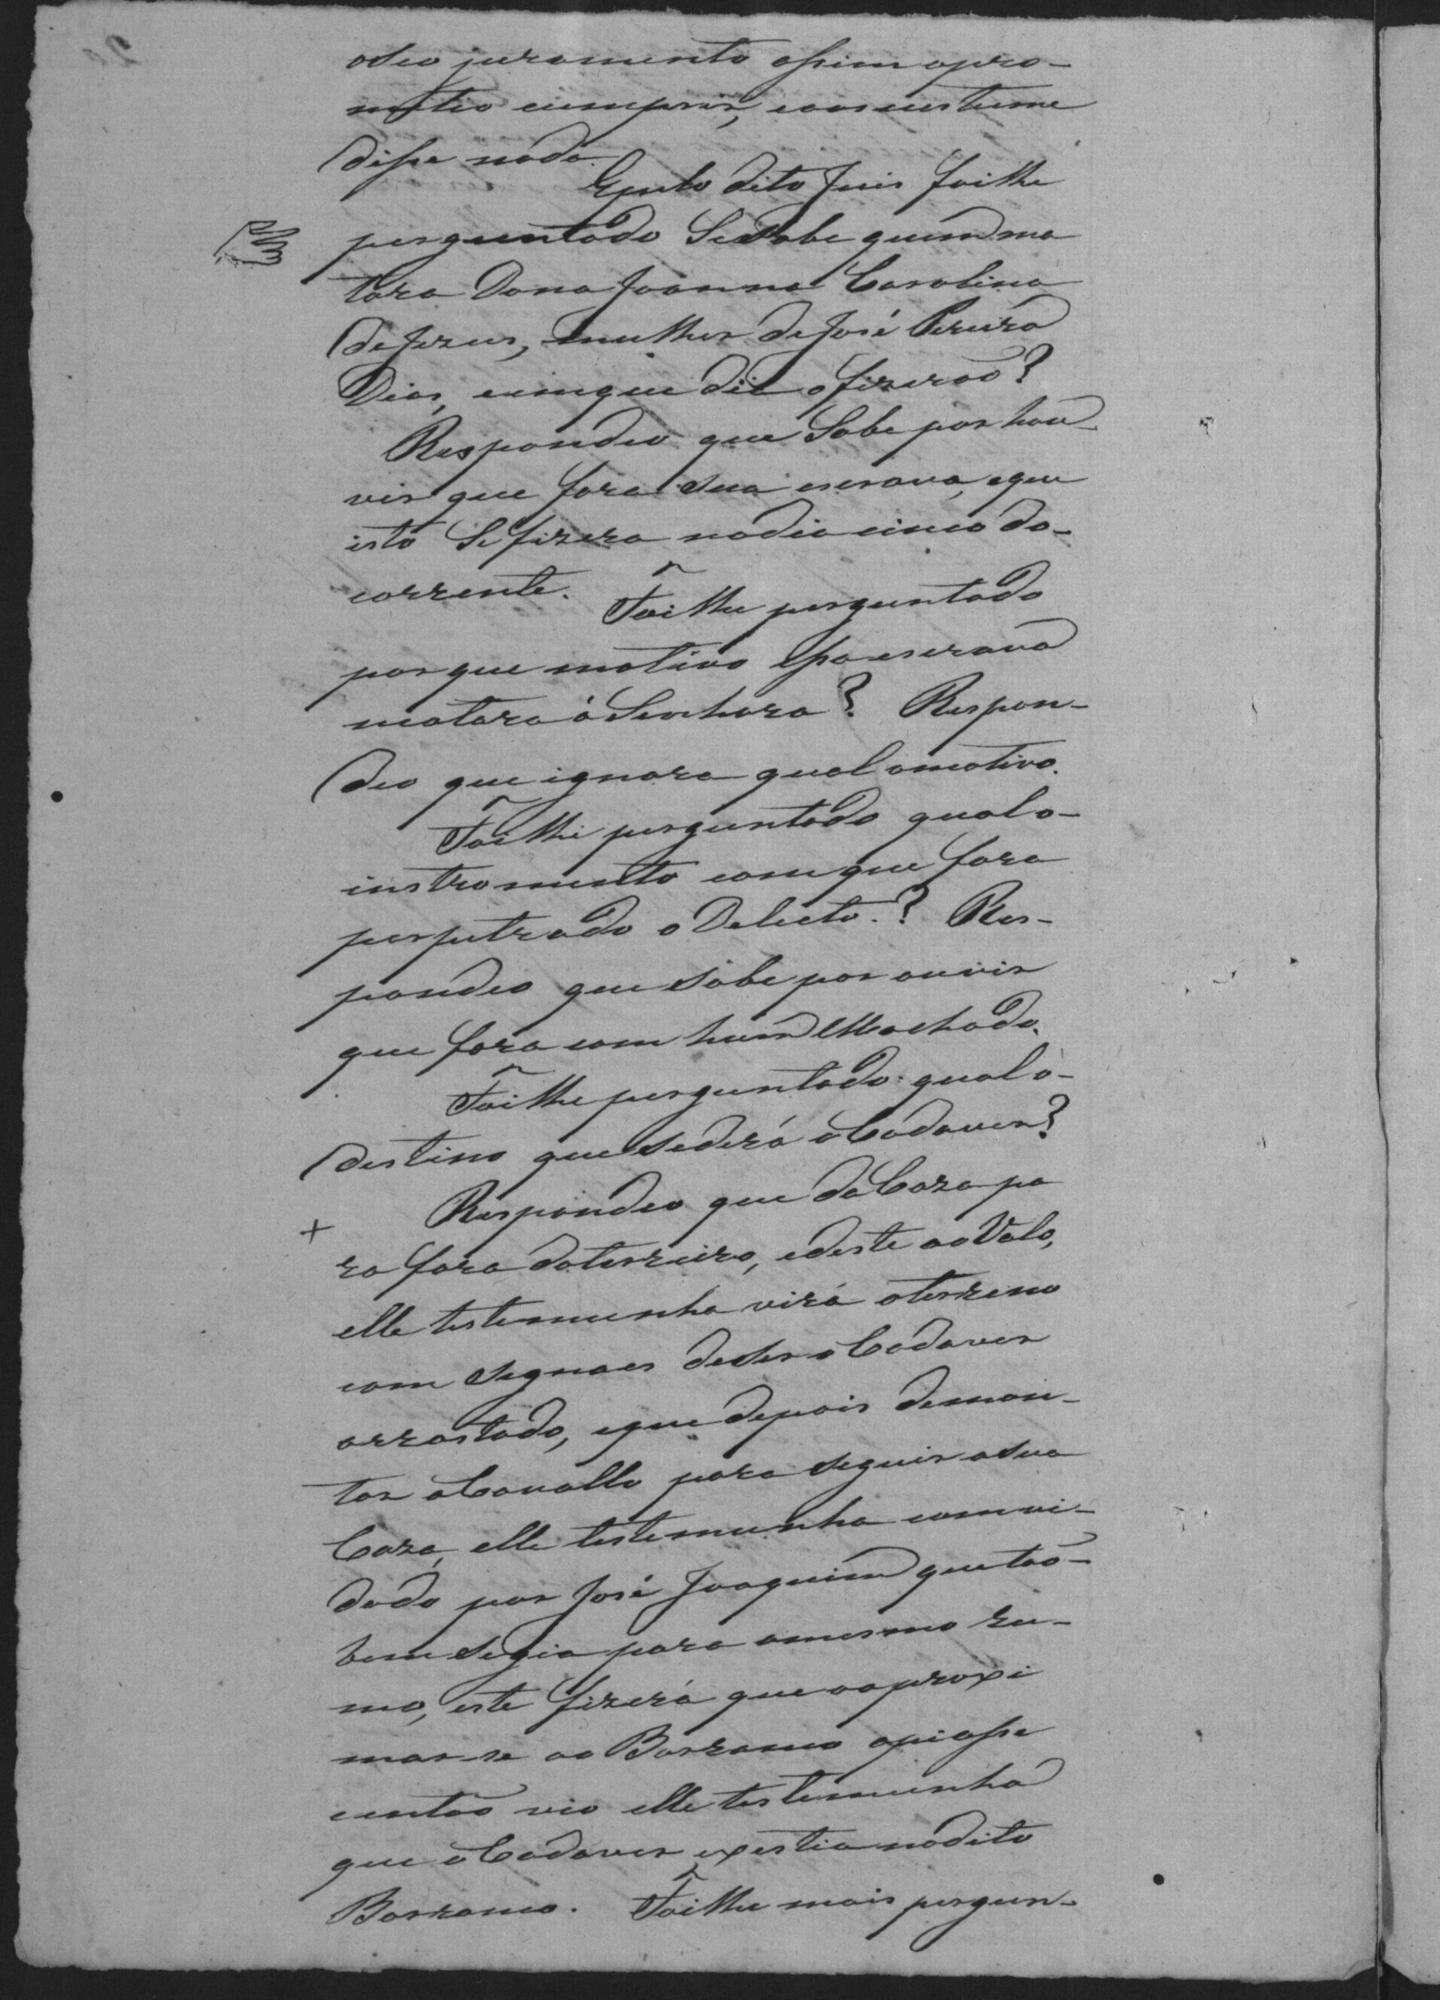 oseo juramento assim opro-
metio cumprir, eaos custume
disse nada.
Epelo dito Juis foi lhe
perguntado Se Sabe quem ma
tara Dona Joanna Carolina
de Jezus, mulher de José Pereira
Dias, eemque dia ofizeraõ?
Respondeo que Sabe por hou-
vir que fora sua escrava, eque
isto Se fizera nodia cinco do-
corrente. Foi lhe perguntado
porque motivo essa escrava
matara á Senhora? Respon-
deo que ignora qual omotivo.
Foi lhe perguntado qual o-
instromento comque fora
perpetrado o Delicto.? Res-
pondeo que sabe por ouvir
que fora com hum Machado.
Foi lhe perguntado qual o-
destino que sederá o Cadaver?
Respondeo que da Caza pa
ra fora doterreiro, edeste ao Valo,
elle testemunha virá oterreno
com segnaes deser o Cadaver
arrastado, eque depois demon-
tar aCavallo para seguir asua
Caza, elle testemunha comvi-
dado por José Joaquim que taõ-
bem segia para omesmo ru-
mo, este fizerá que aoaproxi
mar-se ao Barranco apiasse
entaõ vio elle testemunha
que o Cadaver existia nodito
Barranco. Foi lhe mais pergun-